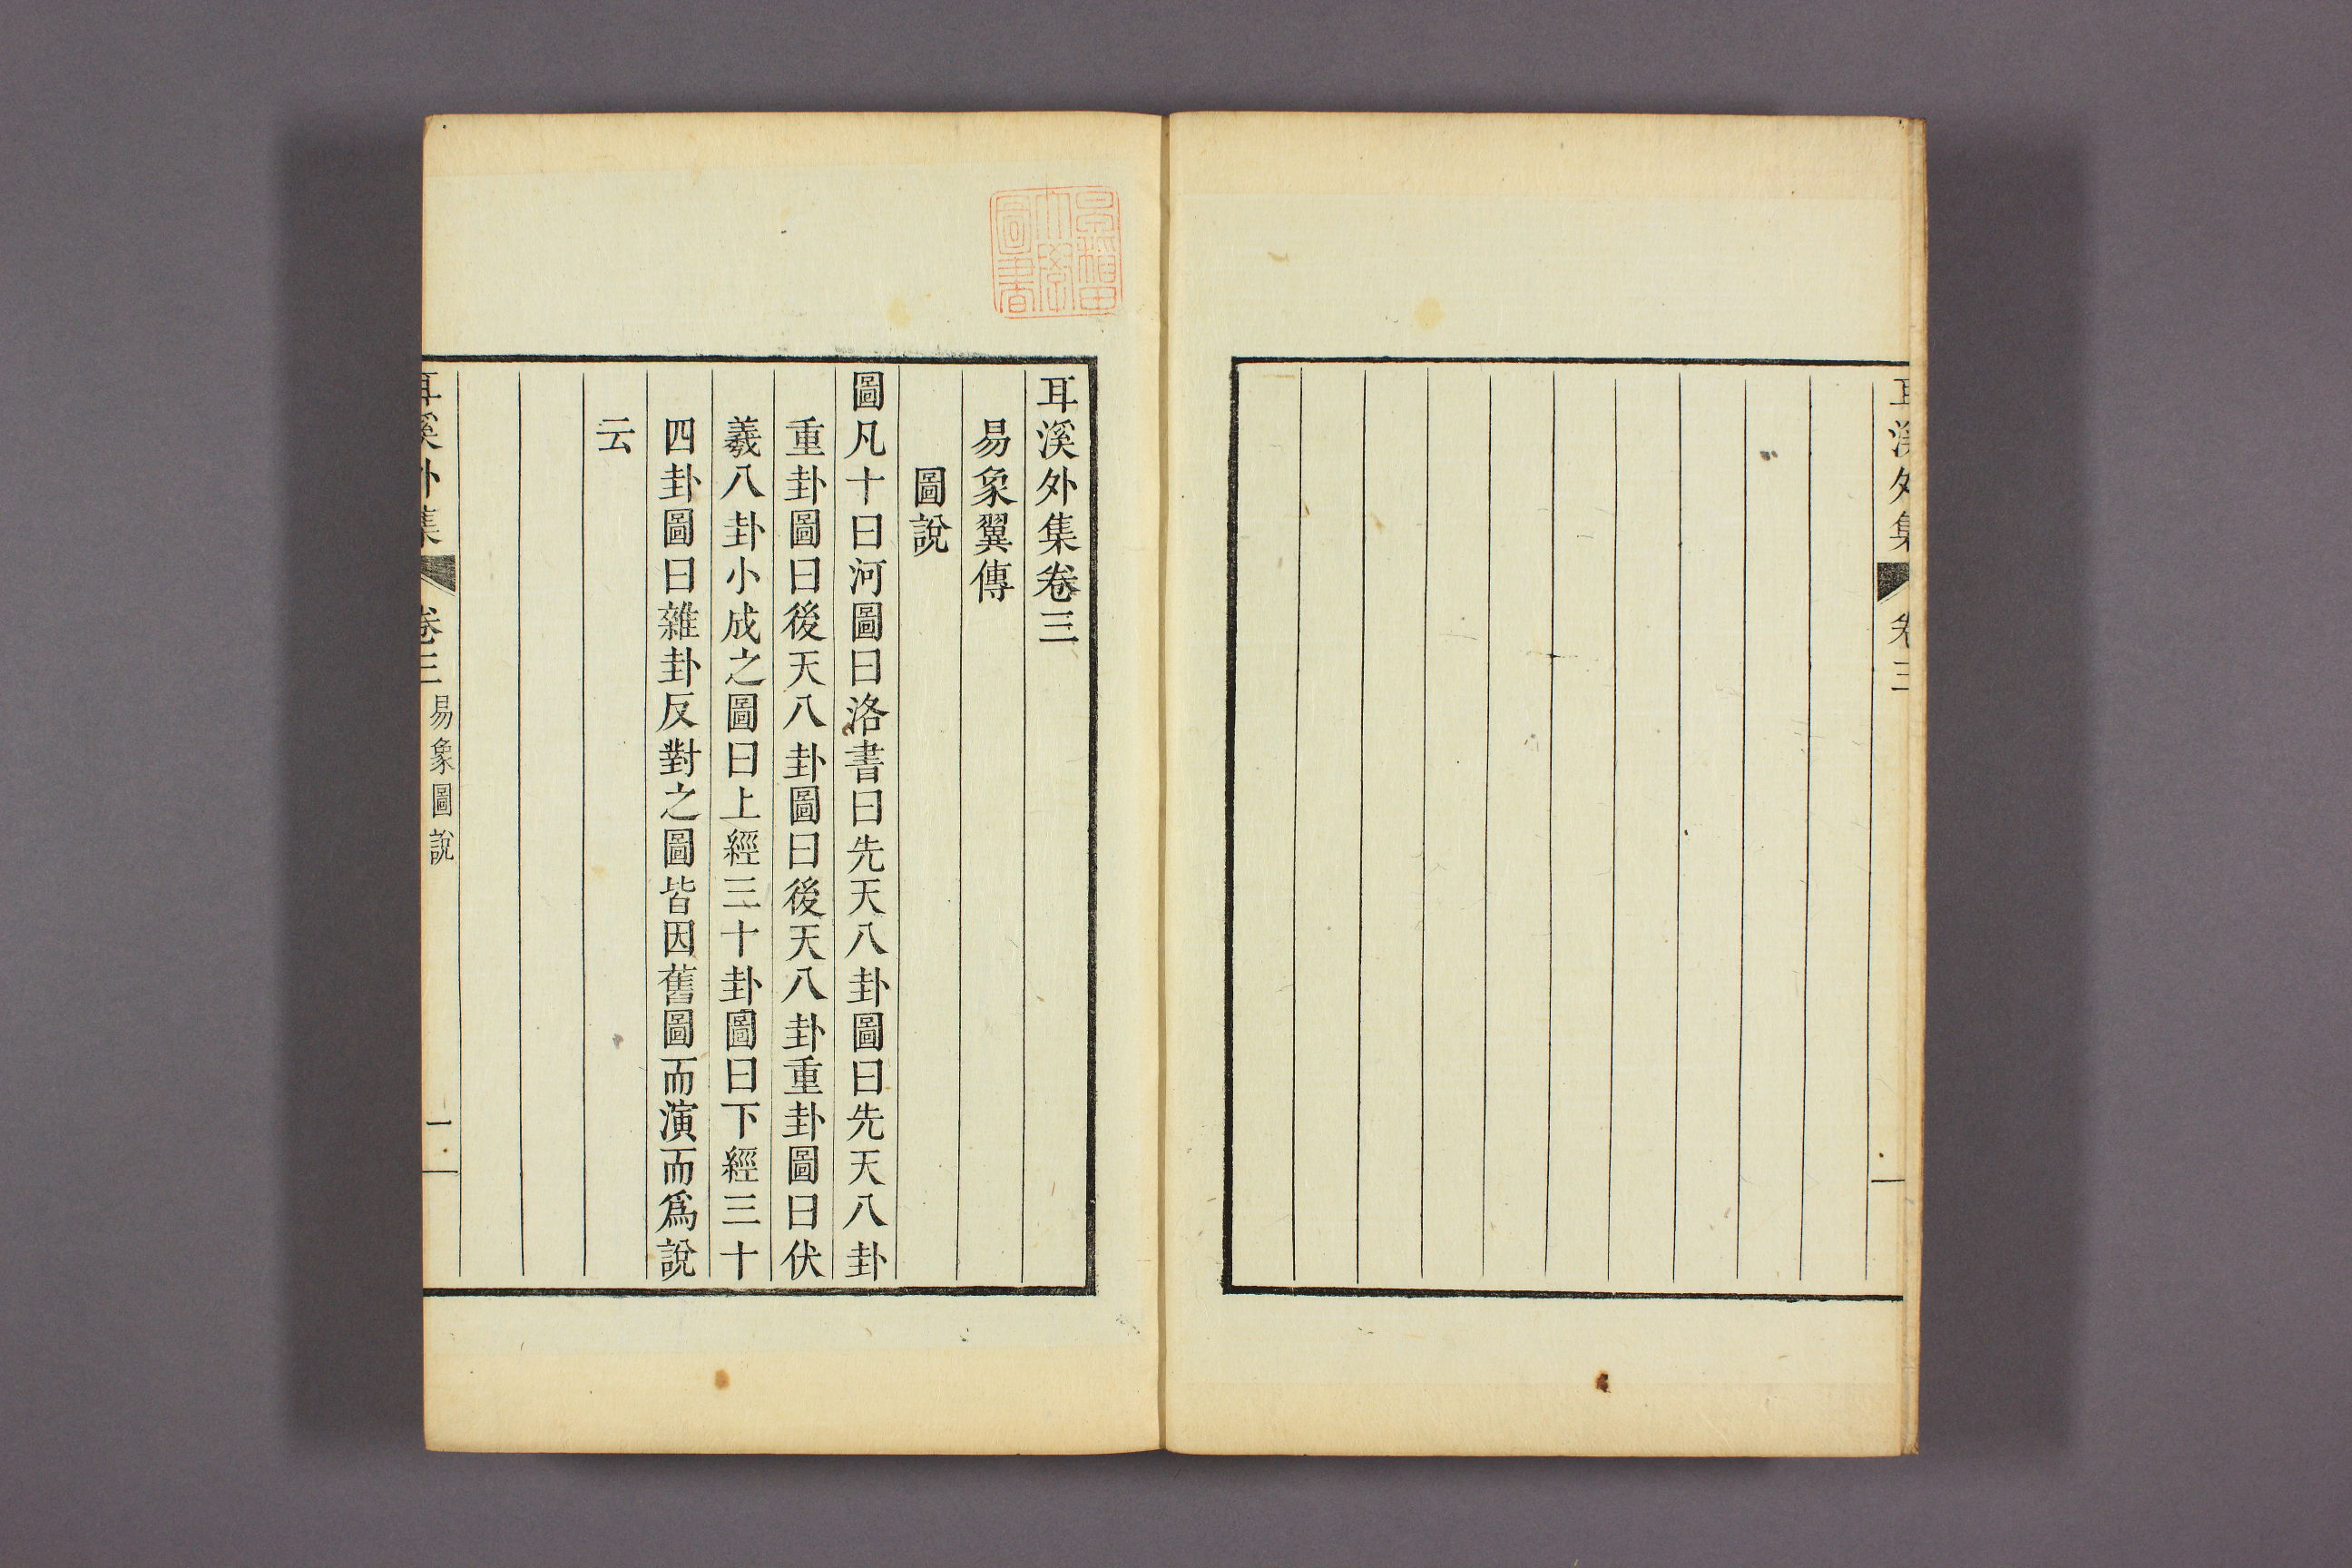 耳溪外集 卷三
早稻田
大學
圖書
耳溪外集卷三
易象翼傳
圖說
圖凡十曰河圖曰洛書曰先天八卦圖曰先天八卦
重卦圖曰後天八卦圖曰後天八卦重卦圖曰伏
羲八卦小成之圖曰上經三十卦圖曰下經三十
四卦圖曰雜卦反對之圖皆因舊圖而演而爲說
云
耳溪外集 卷三 易象圖說 一